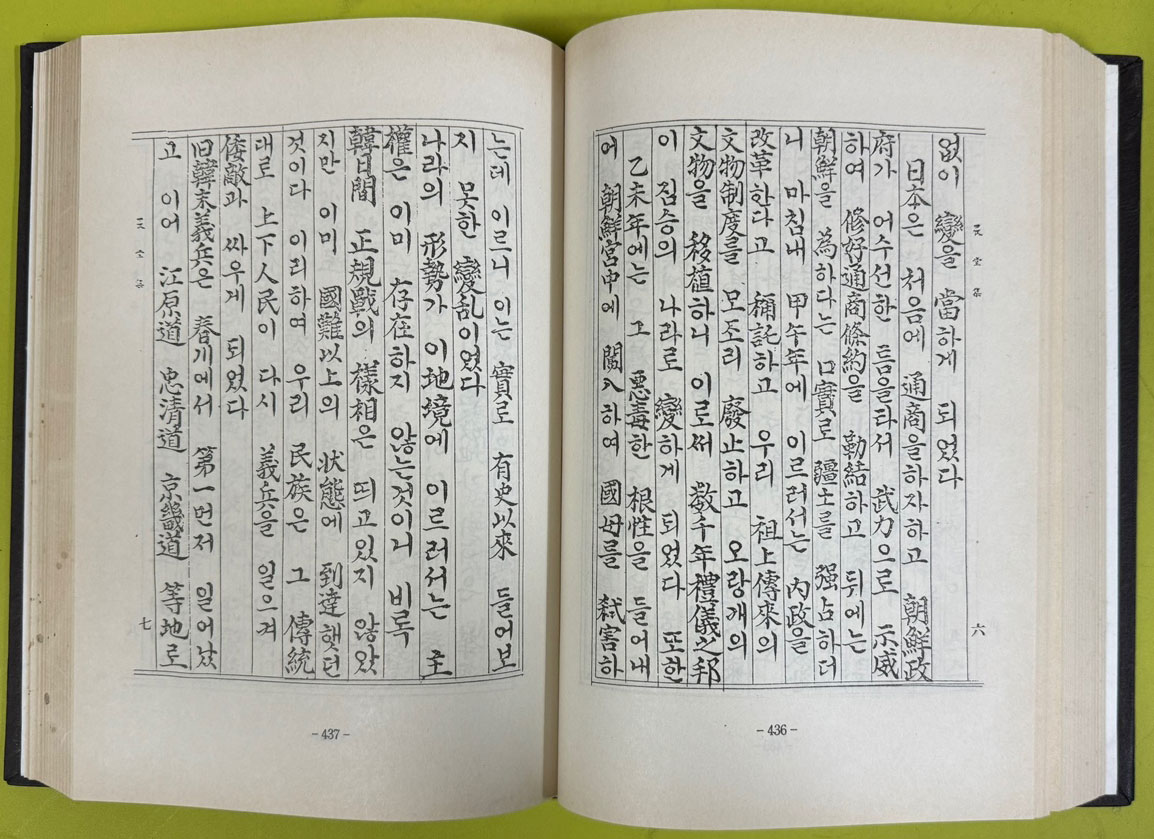 없이 變을 當하게 되었다
日本은 처음에 通商을하자하고 朝鮮政
府가 어수선한 틈을타서 武力으로 示威
하여 修好通商條約을 勒結하고 뒤에는
朝鮮을 為하다는 口實로 疆土를 强占하더
니 마침내 甲午年에 이르러서는 內政을
改革한다고 稱託하고 우리 祖上傳來의
文物制度를 모조리 廢止하고 오랑개의
文物을 移植하니 이로써 数千年禮儀之邦
이 짐승의 나라로 變하게 되었다 또한
乙未年에는 그 惡毒한 根性을 들어내
어 朝鮮宮中에 闖入하여 國母를 弑害하
六
- 436 -
는데 이르니 이는 實로 有史以來 들어보
지 못한 變乱이었다
나라의 形勢가 이地境에 이르러서는 主
權은 이미 存在하지 않는것이니 비록
韓日間 正規戰의 樣相은 띄고있지 않았
지만 이미 國難以上의 状態에 到達했던
것이다 이리하여 우리 民族은 그 傳統
대로 上下人民이 다시 義兵을 일으켜
倭敵과 싸우게 되었다
旧韓末義兵은 春川에서 第一먼저 일어났
고 이어 江原道 忠清道 京畿道 等地로
七
- 437 -